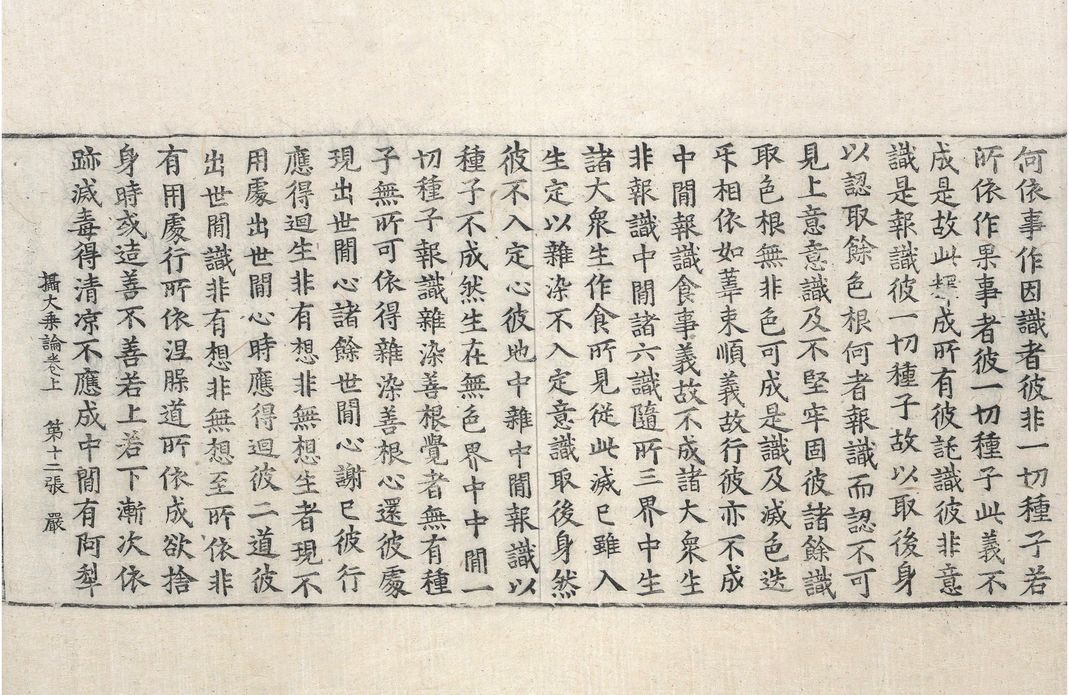 何依事作因識者彼非一切種子若
所依作果事者彼一切種子此義不
成是故此 成所有彼託識彼非意
識是報識彼一切種子故以取後身
以認取餘色根何者報識而認不可
見上意意識及不堅牢固彼諸餘識
取色根無非色可成是識及滅色迭
㸦相依如葦束順義故行彼亦不成
中間報識食事義故不成諸大衆生
非報識中間諸六識隨所三界中生
諸大衆生作食所見從此滅已雖入
生定以雜染不入定意識取後身然
彼不入定心彼地中雜中間報識以
種子不成然生在無色界中中間一
切種子報識雜染善根覺者無有種
子無所可依得雜染善根心還彼處
現出世間心諸餘世間心謝已彼行
應得迴生非有想非無想生者現不
用處出世間心時應得迴彼二道彼
出世間識非有想非無想至所依非
有用處行所依涅槃道所依成欲捨
身時或造善不善若上若下漸次依
跡滅毒得清凉不應成中間有阿犁
攝大乗論卷上 第十二張 嚴